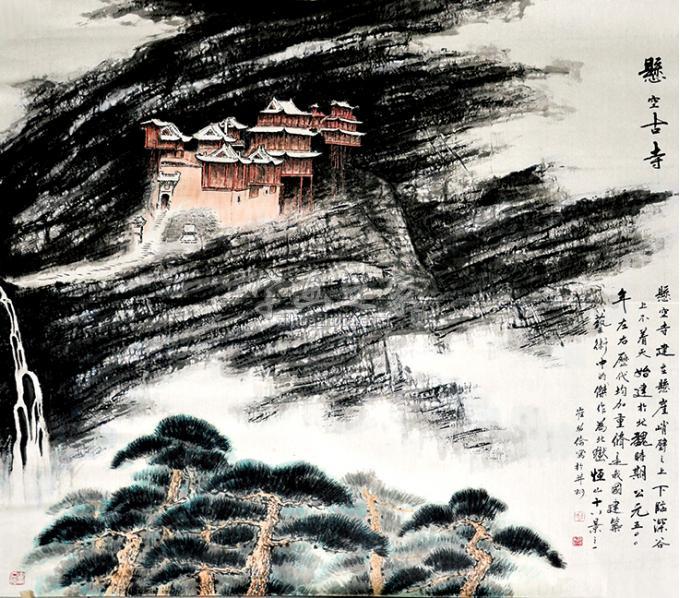 懸空古寺
懸空寺建在懸崖峭壁之上下臨深谷
上不着天始建於北魏時期公元五〇〇
年左右歷代均加重修是我國建築
藝術中的傑作為北嶽恒山十八景之一